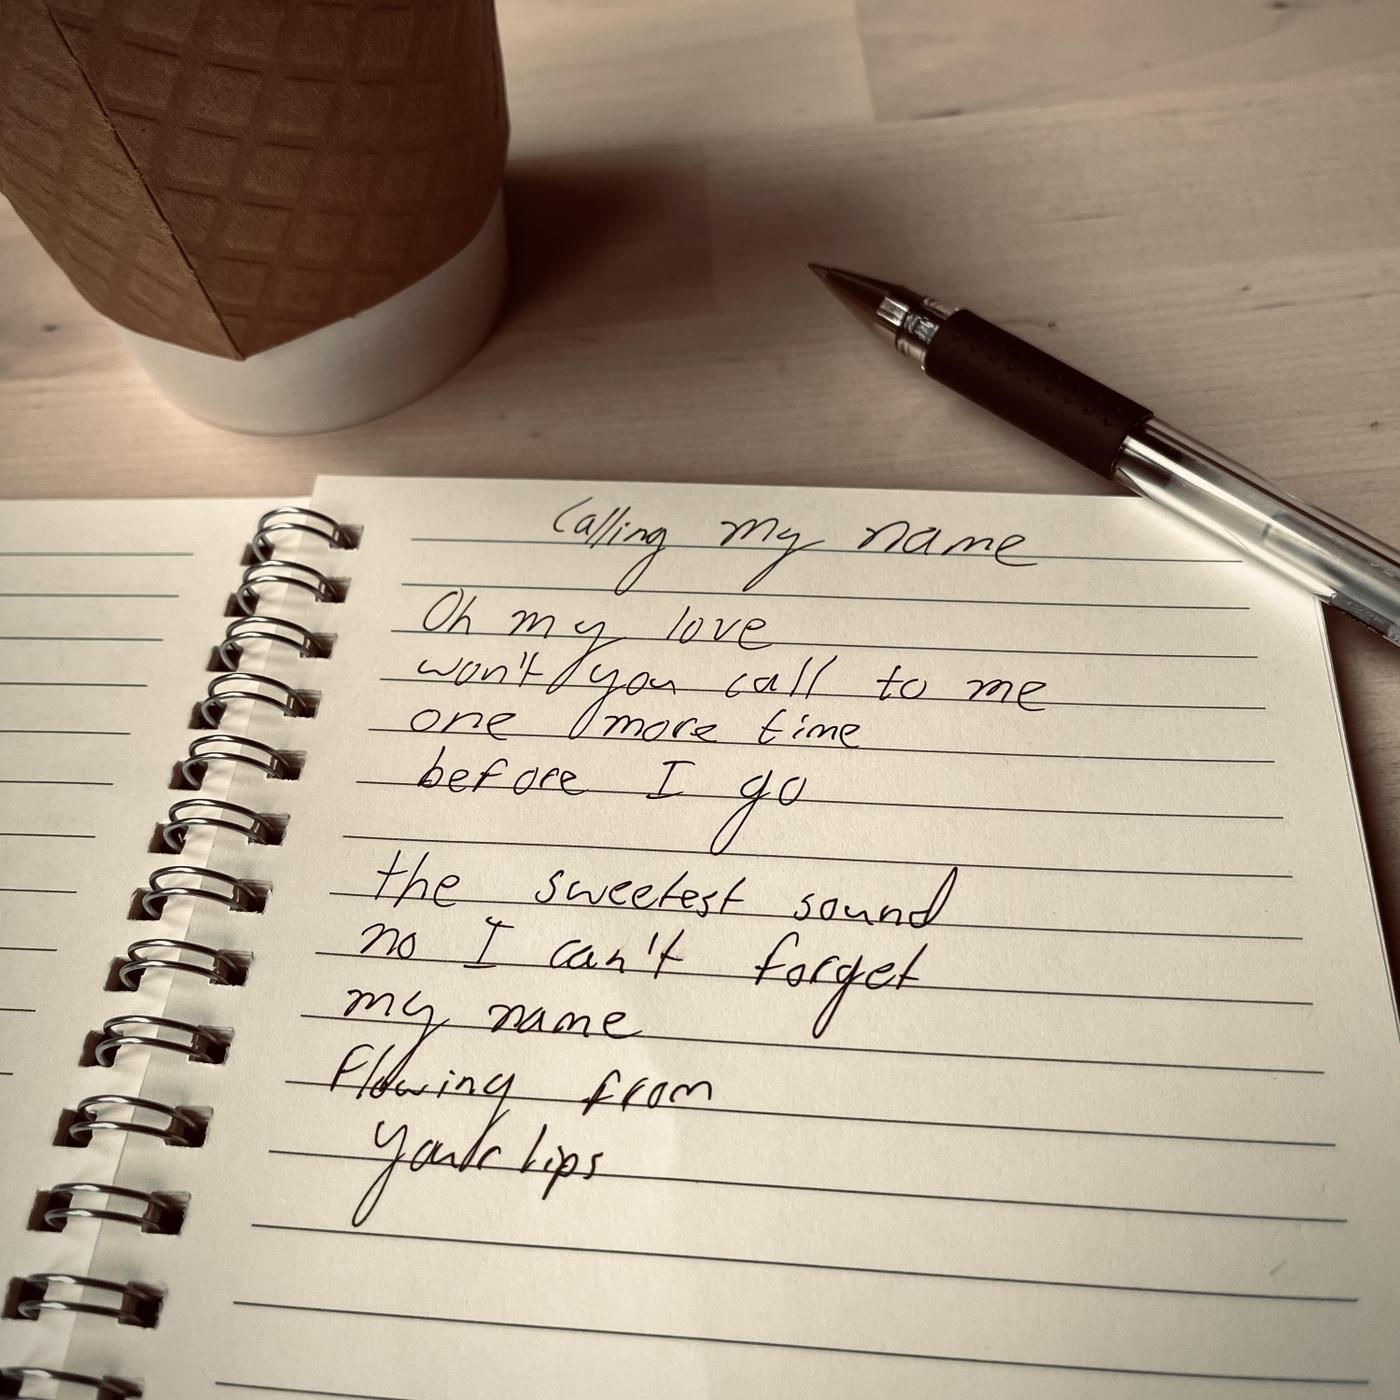 Calling my name
Oh my love
won't you call to me
one more time
before I go
the sweetest sound
no I can't forget
my name
flowing from
your lips